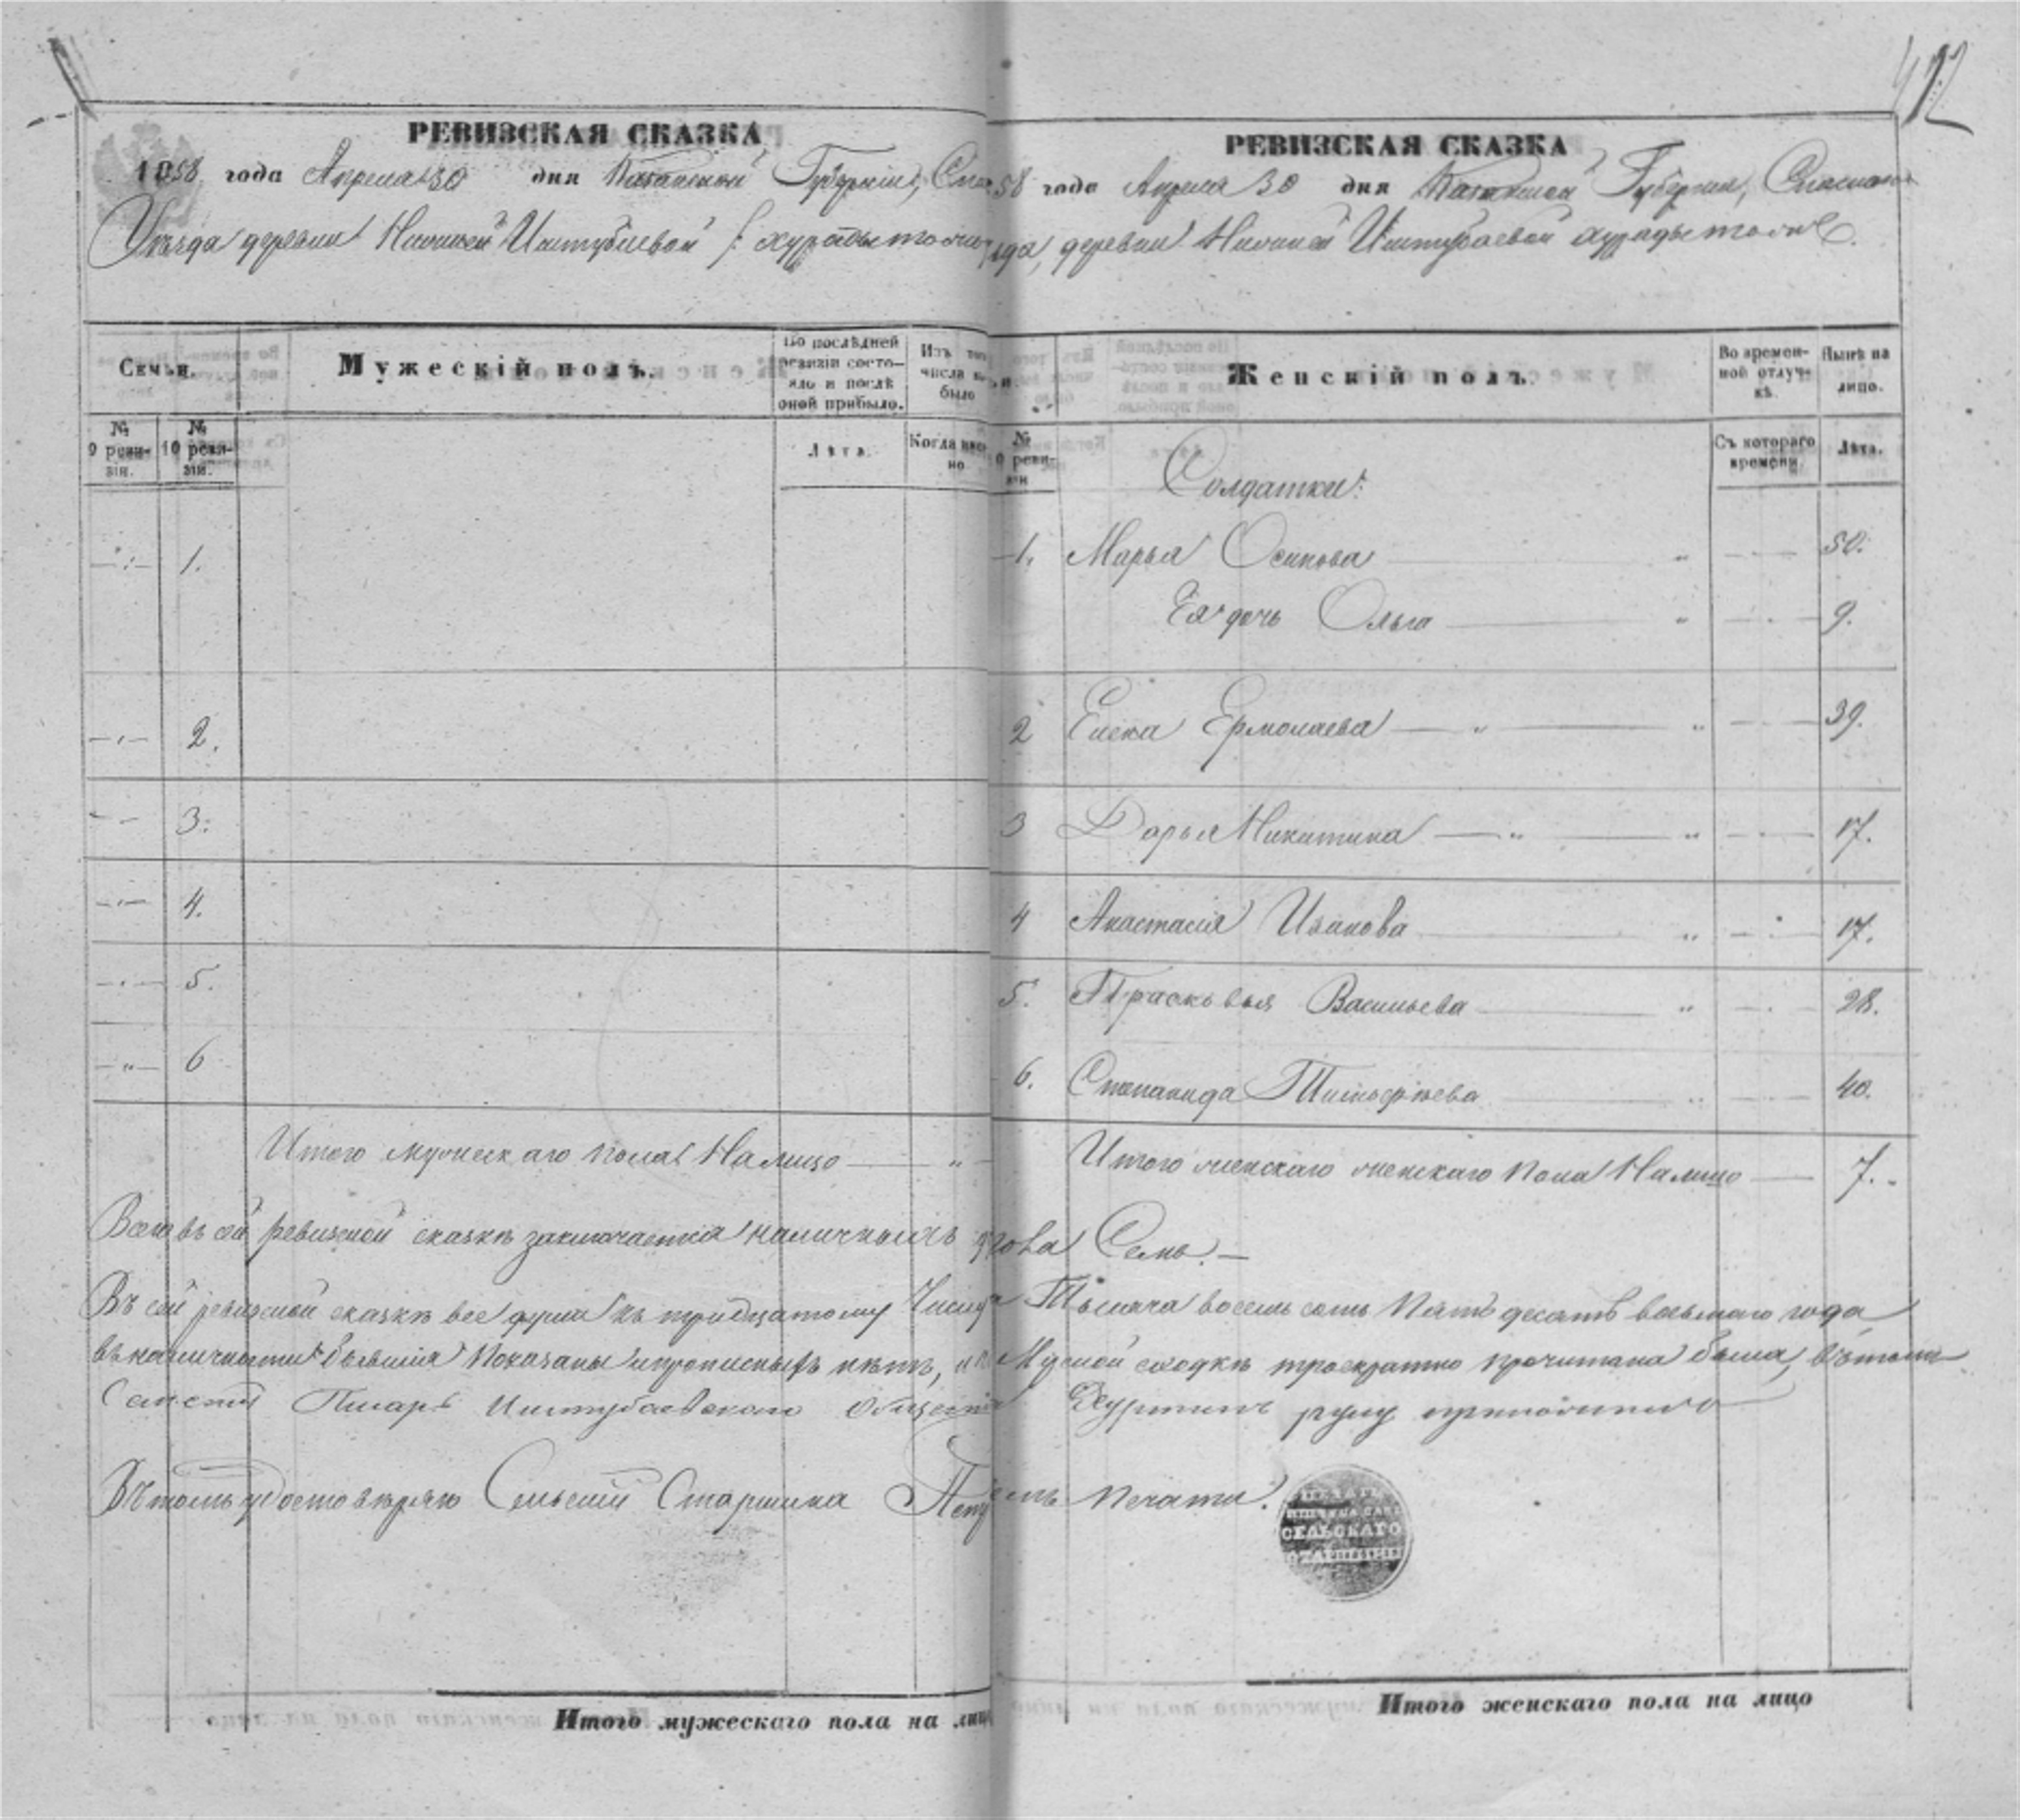 412
РЕВИЗСКАЯ СКАЗКА
1858 года Апреля 30 дня Казанской Губернии, Спас
Уѣзда деревни Нижней Иштубаевой
Семьи.
Мужескій полъ.
По послѣдней ревизіи состояло и послѣ оной прибыло.
Изъ того числа вы было
№ 9 ревизіи.
№ 10 ревизіи.
Лѣта.
Когда именно
1.
2.
3.
4.
5.
6
Итого мужескаго пола На лицо — "
РЕВИЗСКАЯ СКАЗКА
58 года Апреля 30 дня Казанской Губернии, Спаскаго
ѣзда, деревни Нижней Иштубаевой
Женскій полъ.
Во временной отлучкѣ.
Нынѣ на лицо.
№ 0 ревизіи
Съ котораго времени.
Лѣта.
Солдатки:
1. Марья Осипова — " — 50.
Ея дочь Ольга — " — 9.
2 Елена Ермолаева — " — 39.
3 Дарья Никитина — " — 17.
4 Анастасія Иванова — " — 17.
5. Прасковья Васильева — " — 28.
6. Степанида Тимофѣева — " — 40.
Итого женскаго женскаго пола На лицо — 7.
Всего въ сей ревизской сказкѣ заключается наличныхъ Семь. —
Въ сей ревизской сказкѣ все души къ тридцатому Числу Тысяча восемь сотъ Пять десятъ восьмаго года
въ наличности бывшія Показаны и прописныхъ нѣтъ, и сходкѣ троекратно прочитана была, въ томъ
Сельскій Писарь Иштубаевскаго Общества руку приложилъ
Въ томъ удостовѣряю Сельскій Старшина печати.
ПЕЧАТЬ
СЕЛЬСКАГО
СТАРШИНЫ
Итого мужескаго пола на лицо
Итого женскаго пола на лицо